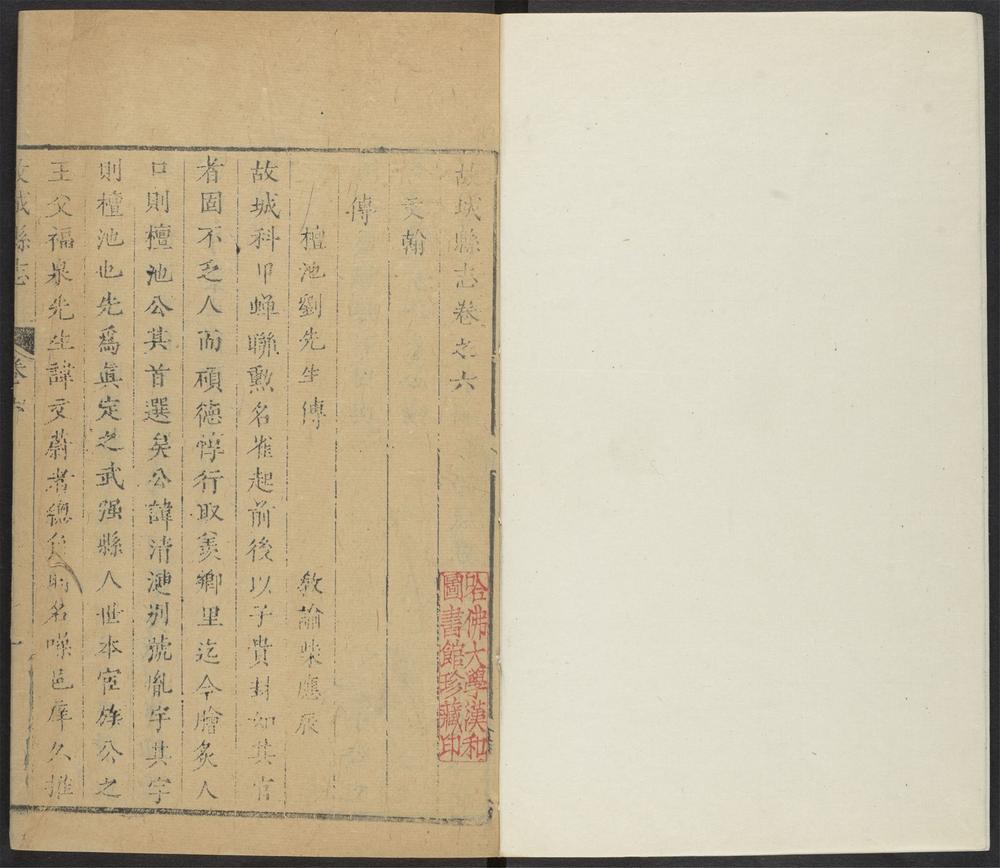 故城縣志卷之六
文翰
傳
檀池劉先生傳 教諭柴應辰
故城科甲蟬聯勲名崔起前後以子貴封如其官
者固不乏人而碩德惇行取羨鄉里迄今膾炙人
口則檀池公其首選矣公諱清漣别號胤宇其字
則檀池也先爲真定之武强縣人世本宦族公之
王父福泉先生諱文蔚者總角時名噪邑庠久推
故城縣志 卷六 一
哈佛大學漢和
圖書館珍藏印